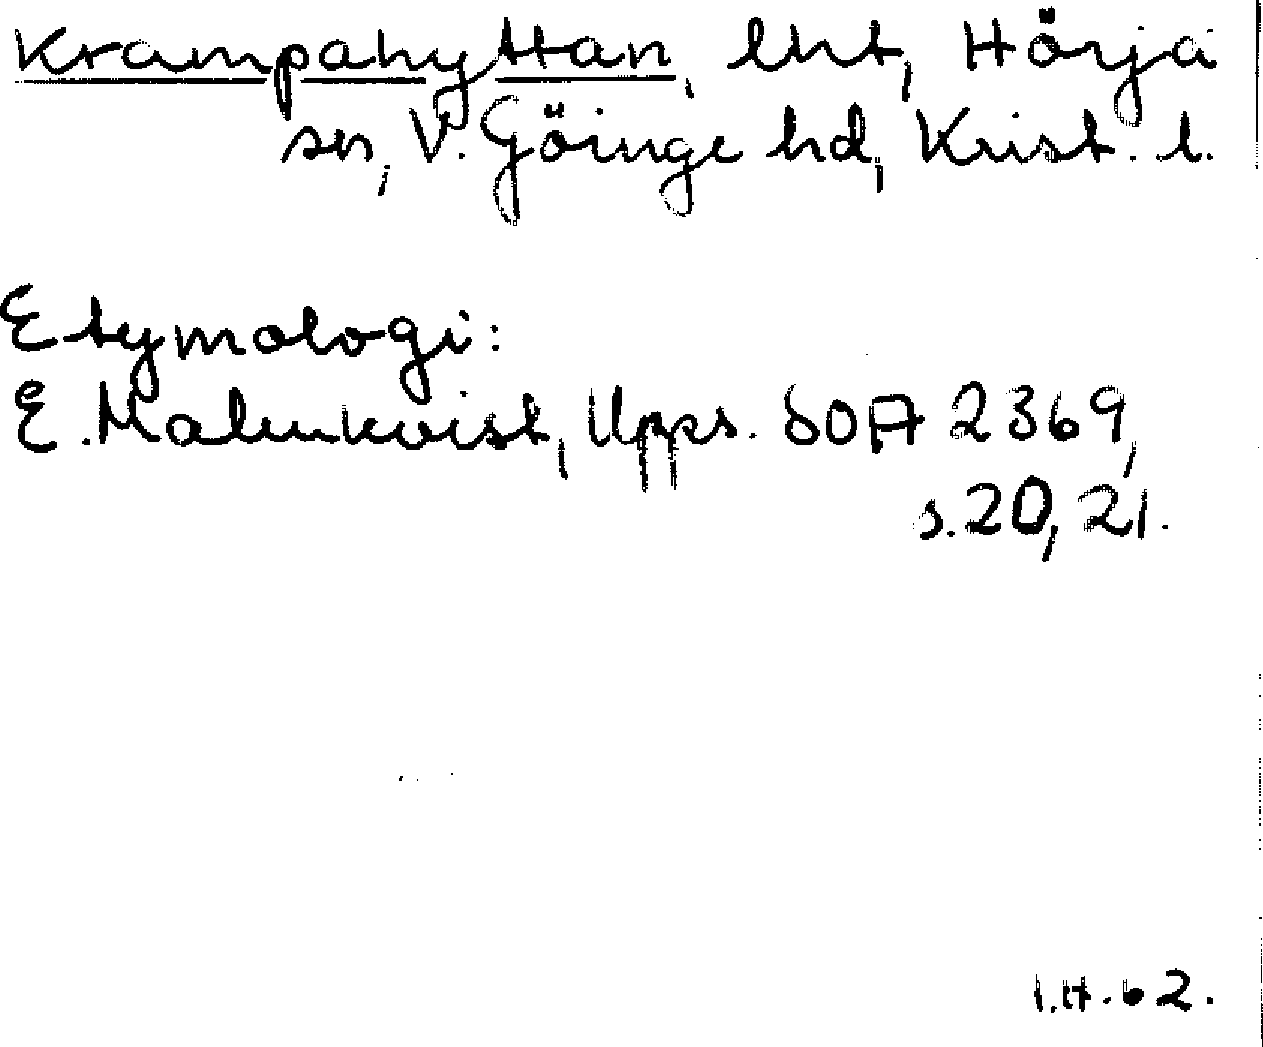 Krampahyttan, lht, Hörja
sn, V. Göinge hd, Krist. l.
Etymologi:
E. Malmkvist, Upps. SOA 2369,
s. 20, 21.
I.H. 62.